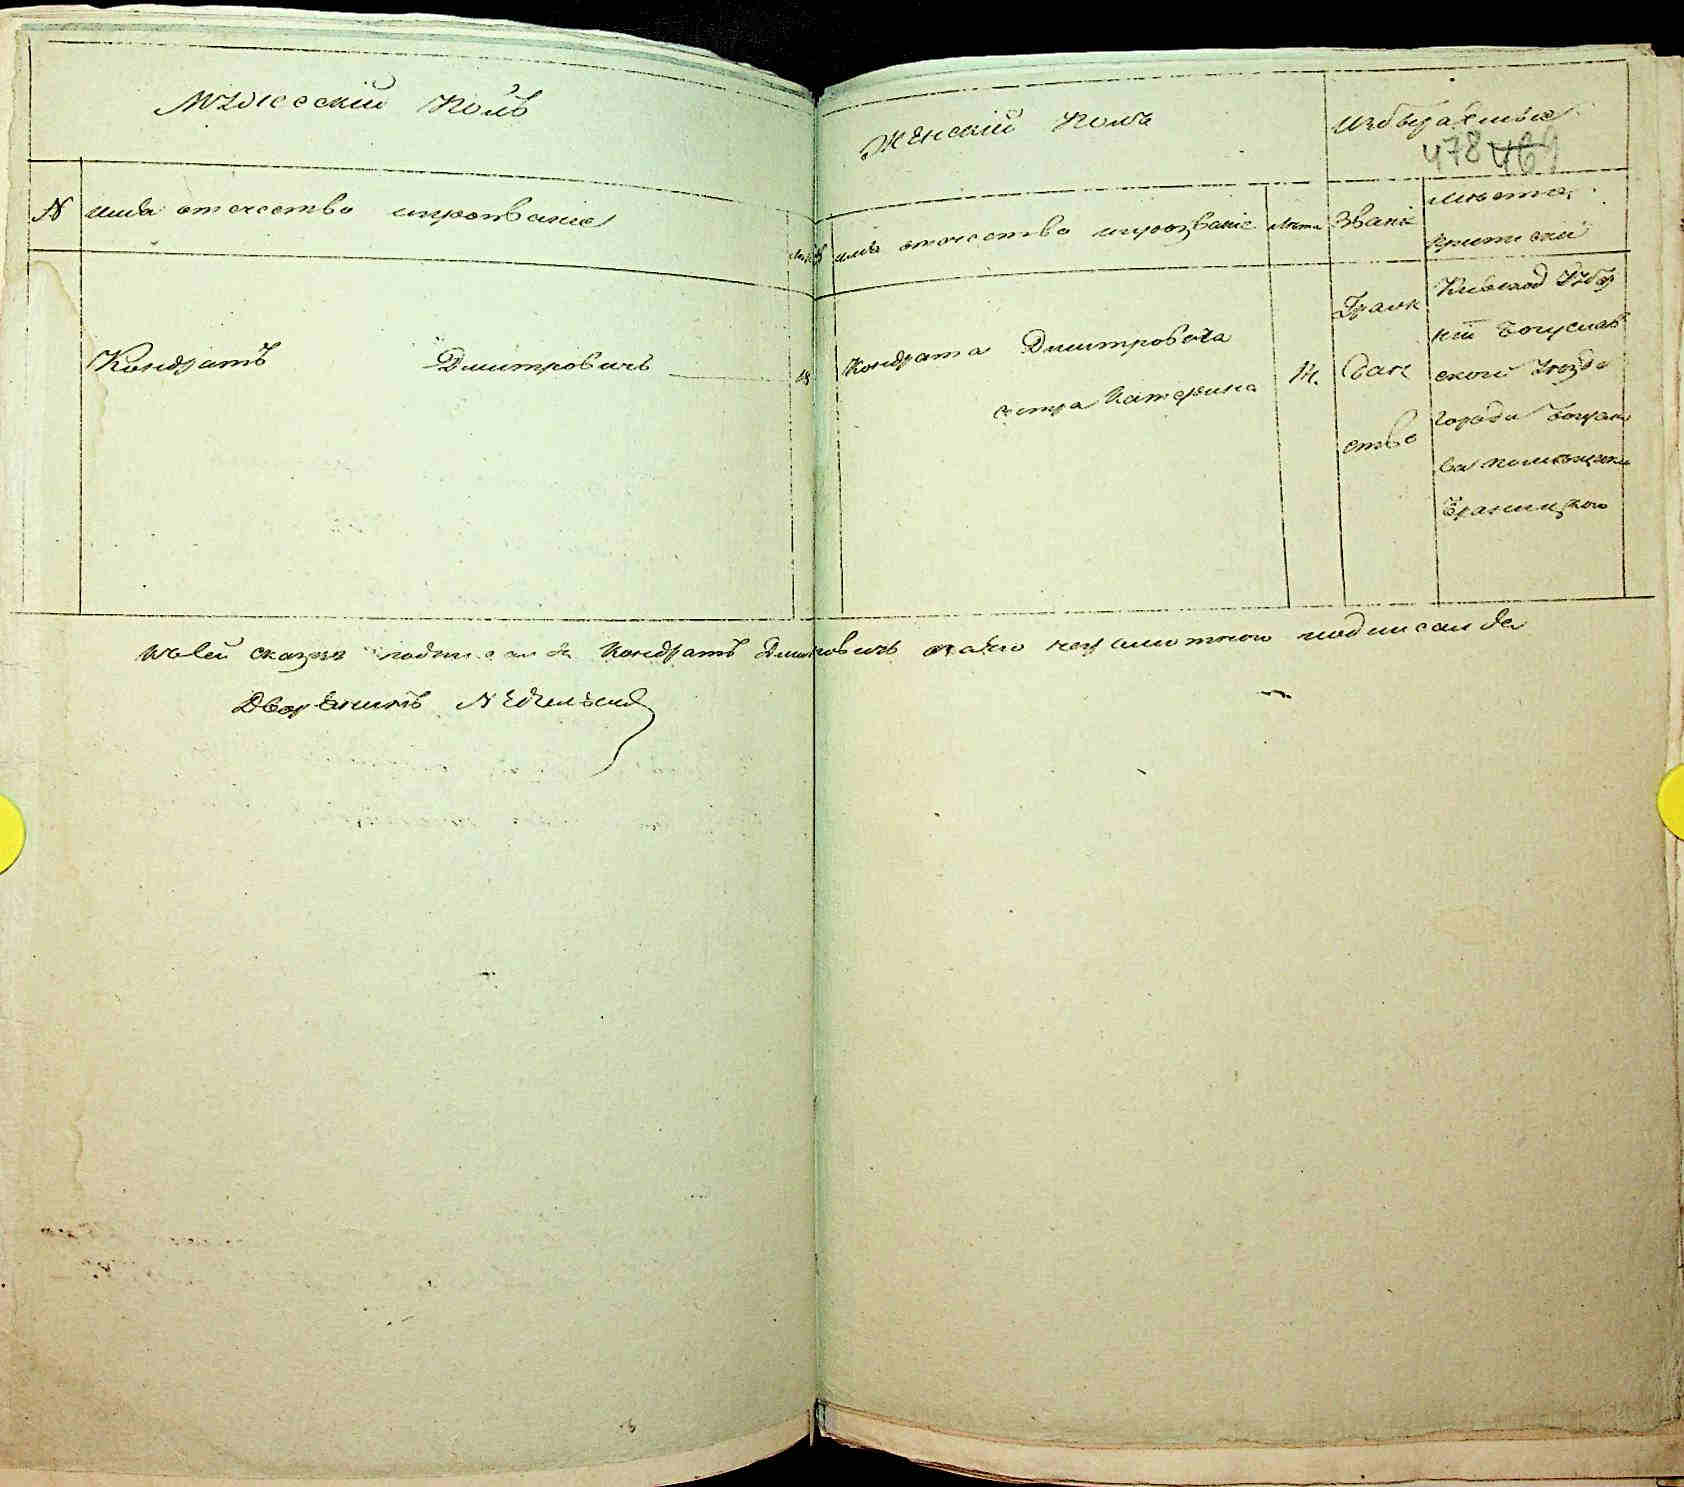 Мужескій Полъ
Женскій Полъ
Избираемые
478 469
N
имя отечество ипрозваніе
лѣта
N
имя отечество ипрозваніе
лѣта
Званіе
мѣсто
приписки
Кондратъ Дмитровичъ
18
Кондрата Дмитровича
сестра Катерина
14.
Граж
дан
ство
Кіевской Губер
ніи Богуслав
ской уѣзда
города Богусла
ва помѣщика
Браницкого
Ксей сказке подписался Кондратъ Дмитровичъ онаго неграмотного подписался
Дворянинъ